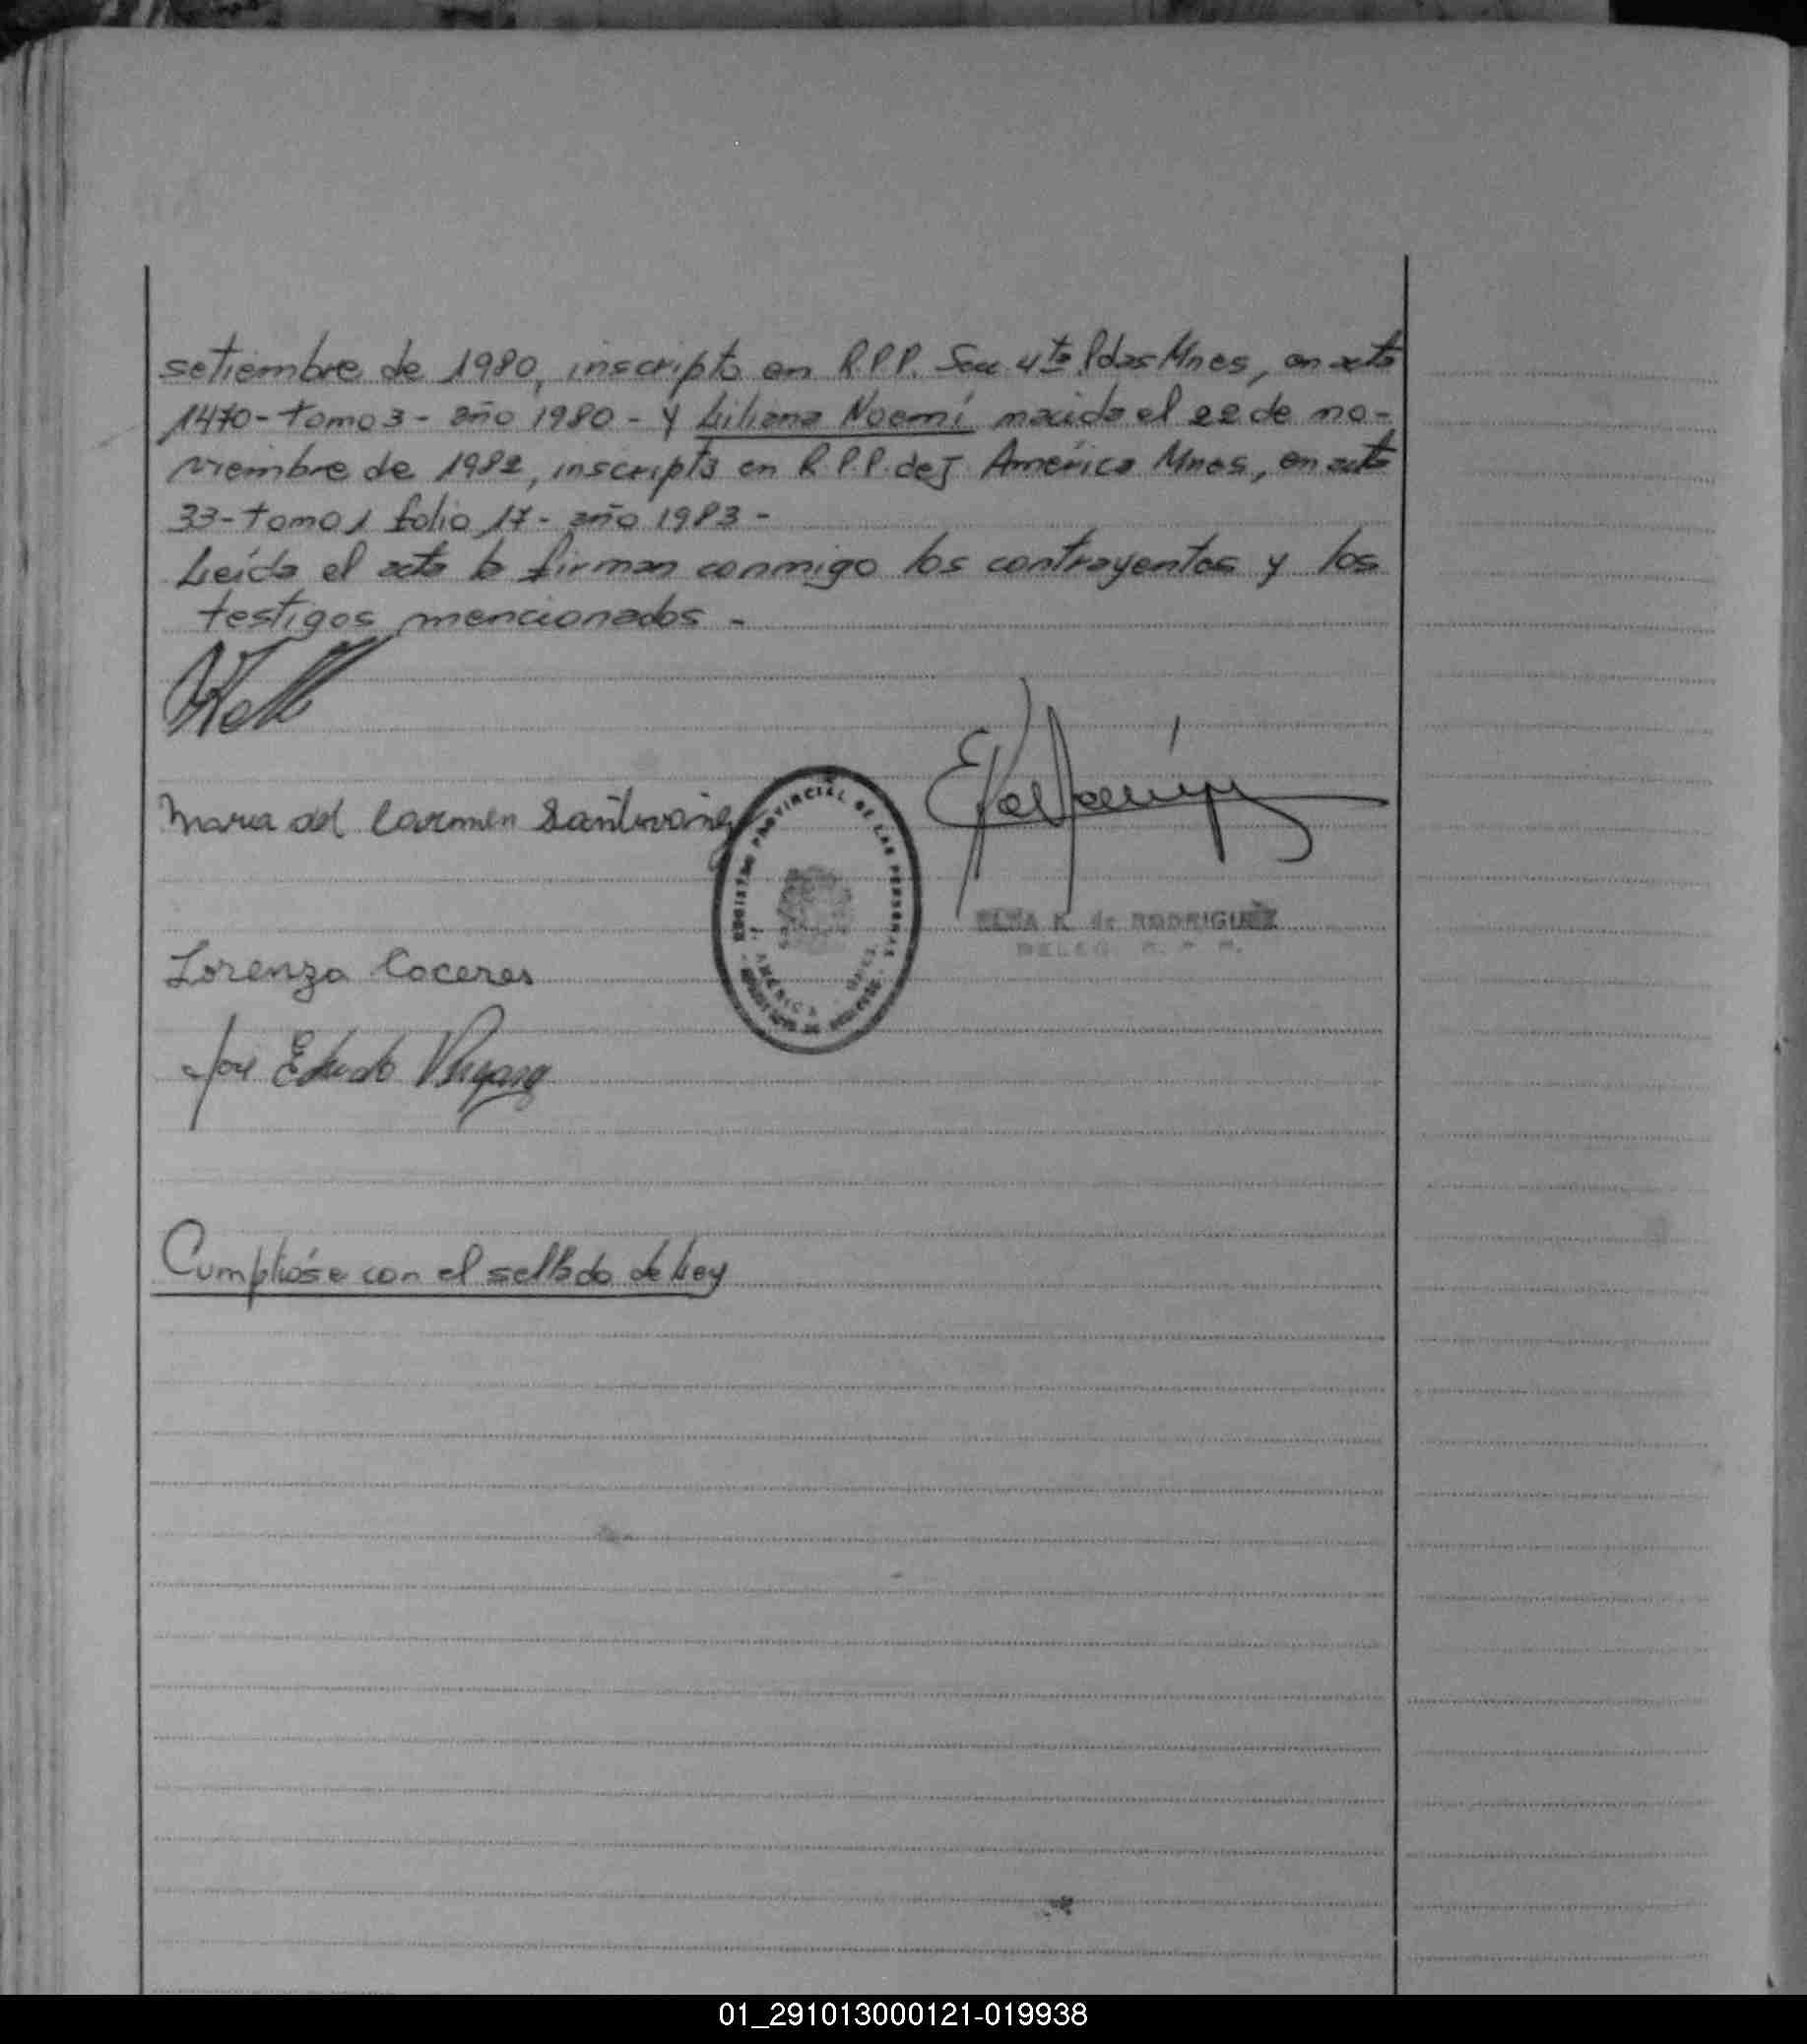 setiembre de 1980, inscripto en R.P.P. Secc. 4ta Pdas Mnes, en acta
1470 - tomo 3 - año 1980 - y Liliana Noemí nacida el 22 de no-
viembre de 1982, inscripta en R.P.P. de J América Mnes, en acta
33 - tomo 1 folio 17 - año 1983 -
Leída el acta la firman conmigo los contrayentes y los
testigos mencionados -
Maria del Carmen Santivañez
REGISTRO PROVINCIAL DE LAS PERSONAS
AMÉRICA
K. de RODRIGUEZ
DELEG. R. P. P.
Lorenza Caceres
Jose Eduardo
Cumplióse con el sellado de Ley
01_291013000121-019938